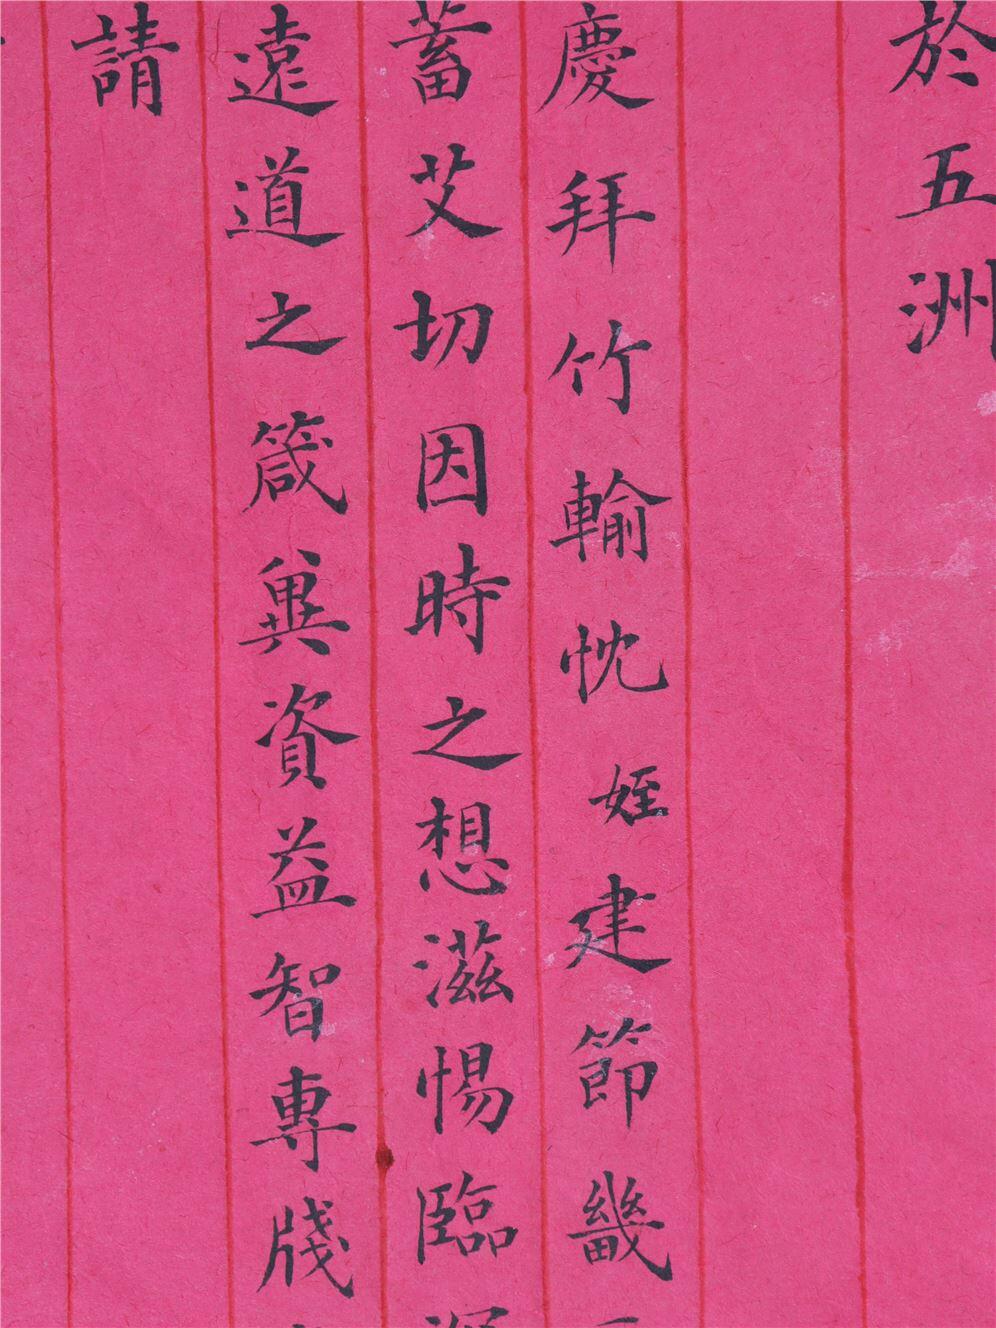 於五洲
慶拜竹輸忱姪建節畿
蓄艾切因時之想滋惕臨深
遠道之箴兾資益智專牋
請